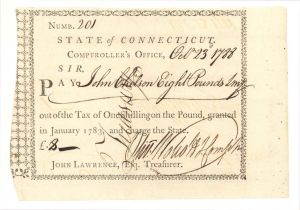 NUMB. 201
STATE of CONNECTICUT,
COMPTROLLER'S OFFICE, Octr 23 1788
SIR,
PAY John Eight Pounds
out of the Tax of One Shilling on the Pound, granted
in January 1783, and charge the State.
£ 8
JOHN LAWRENCE, Esq. Treasurer.